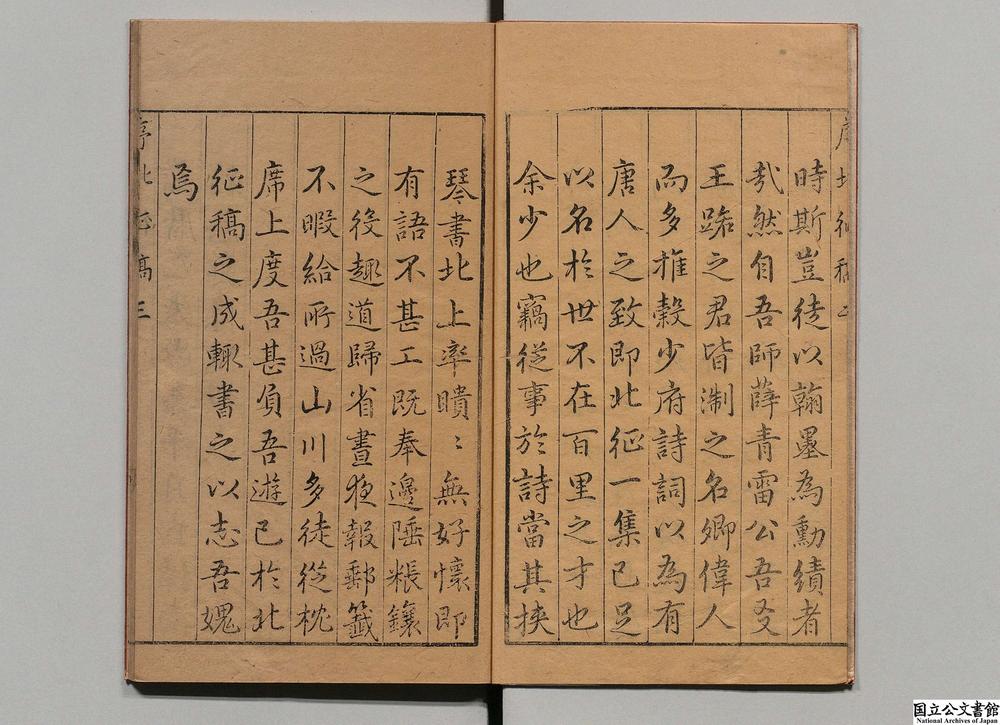 時斯豈徒以翰墨為勳績者
哉然自吾師薛青雷公吾友
王踣之君皆淛之名卿偉人
而多推轂少府詩詞以為有
唐人之致即北征一集已足
以名於世不在百里之才也
余少也竊從事於詩當其挾
琴書北上率瞶〻無好懷即
有語不甚工既奉邊陲粻鑲
之役趣道歸省晝夜報郵籤
不暇給所過山川多徒從枕
席上度吾甚負吾遊已於北
征稿之成輒書之以志吾媿
焉
序北征稿三
国立公文書館
National Archives of Japan